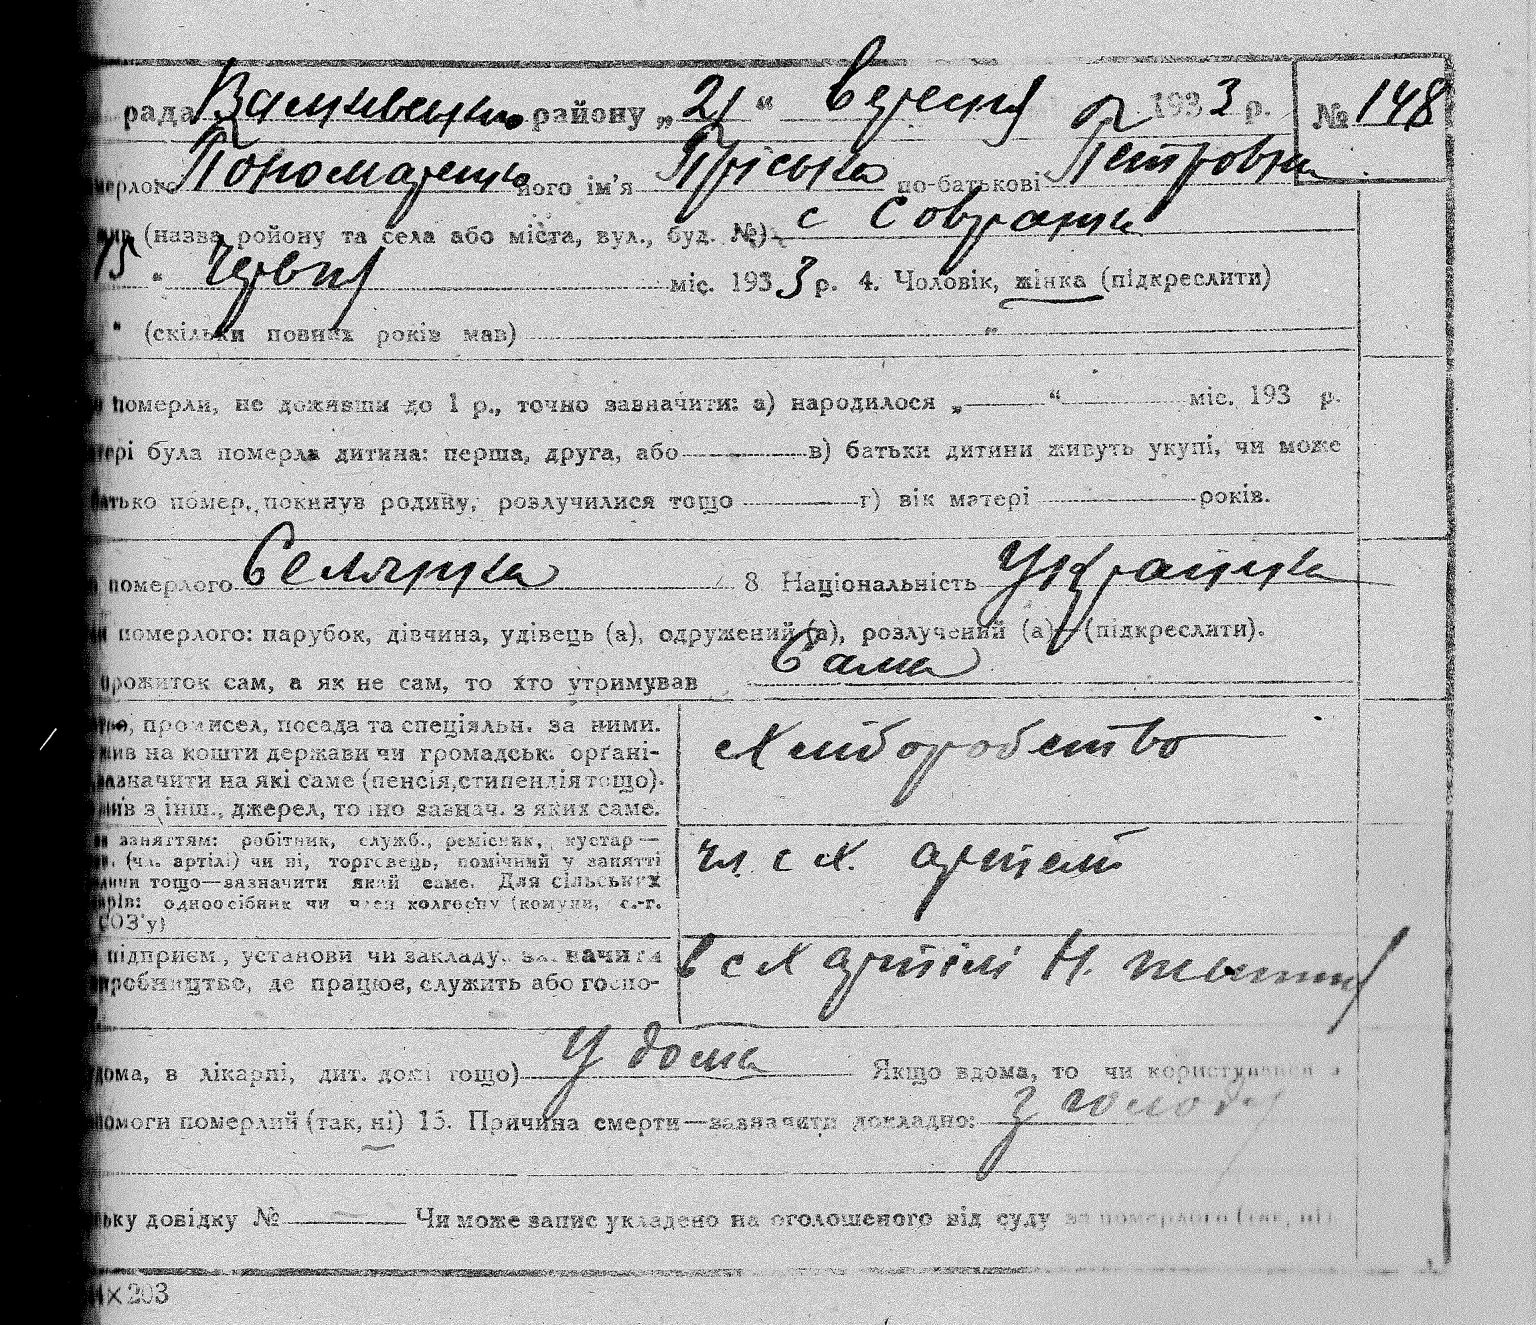 рада Валківського району „ 21 “ вересня 1933 р. № 148
мерлого Пономаренко його ім'я Пріська по-батькові Петровна
жив (назва району та села або міста, вул., буд. №) с
15 “ Червня міс. 1933 р. 4. Чоловік, жінка (підкреслити)
“ (скільки повних років мав) “
померли, не доживши до 1 р., точно зазначити: а) народилося „ “ міс. 193 р.
тері була померла дитина: перша, друга, або в) батьки дитини живуть укупі, чи може
батько помер, покинув родину, розлучилися тощо г) вік матері років.
померлого Селянка 8 Національність Українка
померлого: парубок, дівчина, удівець (а), одружений (а), розлучений (а)—(підкреслити).
прожиток сам, а як не сам, то хто утримував Сама
промисел, посада та спеціяльн. за ними.
жив на кошти держави чи громадськ. орґані-
зазначити на які саме (пенсія, стипендія тощо).
жив з інш., джерел, точно зазнач. з яких саме.
Хліборобство
заняттям: робітник, служб., ремісник, кустар —
(чл. артілі) чи ні, торговець, помічний у занятті
тощо—зазначити який саме. Для сільських
одноосібник чи член колгоспу (комуни, с.-г.
СОЗ'у)
чл. с х. артелі
підприєм., установи чи закладу. зазначити
виробництво, де працює, служить або госпо-
в с х артілі Н.
вдома, в лікарні, дит. домі тощо) У дома Якщо вдома, то чи користувався
помоги померлий (так, ні) 15. Причина смерти—зазначити докладно: з голоду
довідку № Чи може запис укладено на оголошеного від суду за померлого (так, ні)
×203